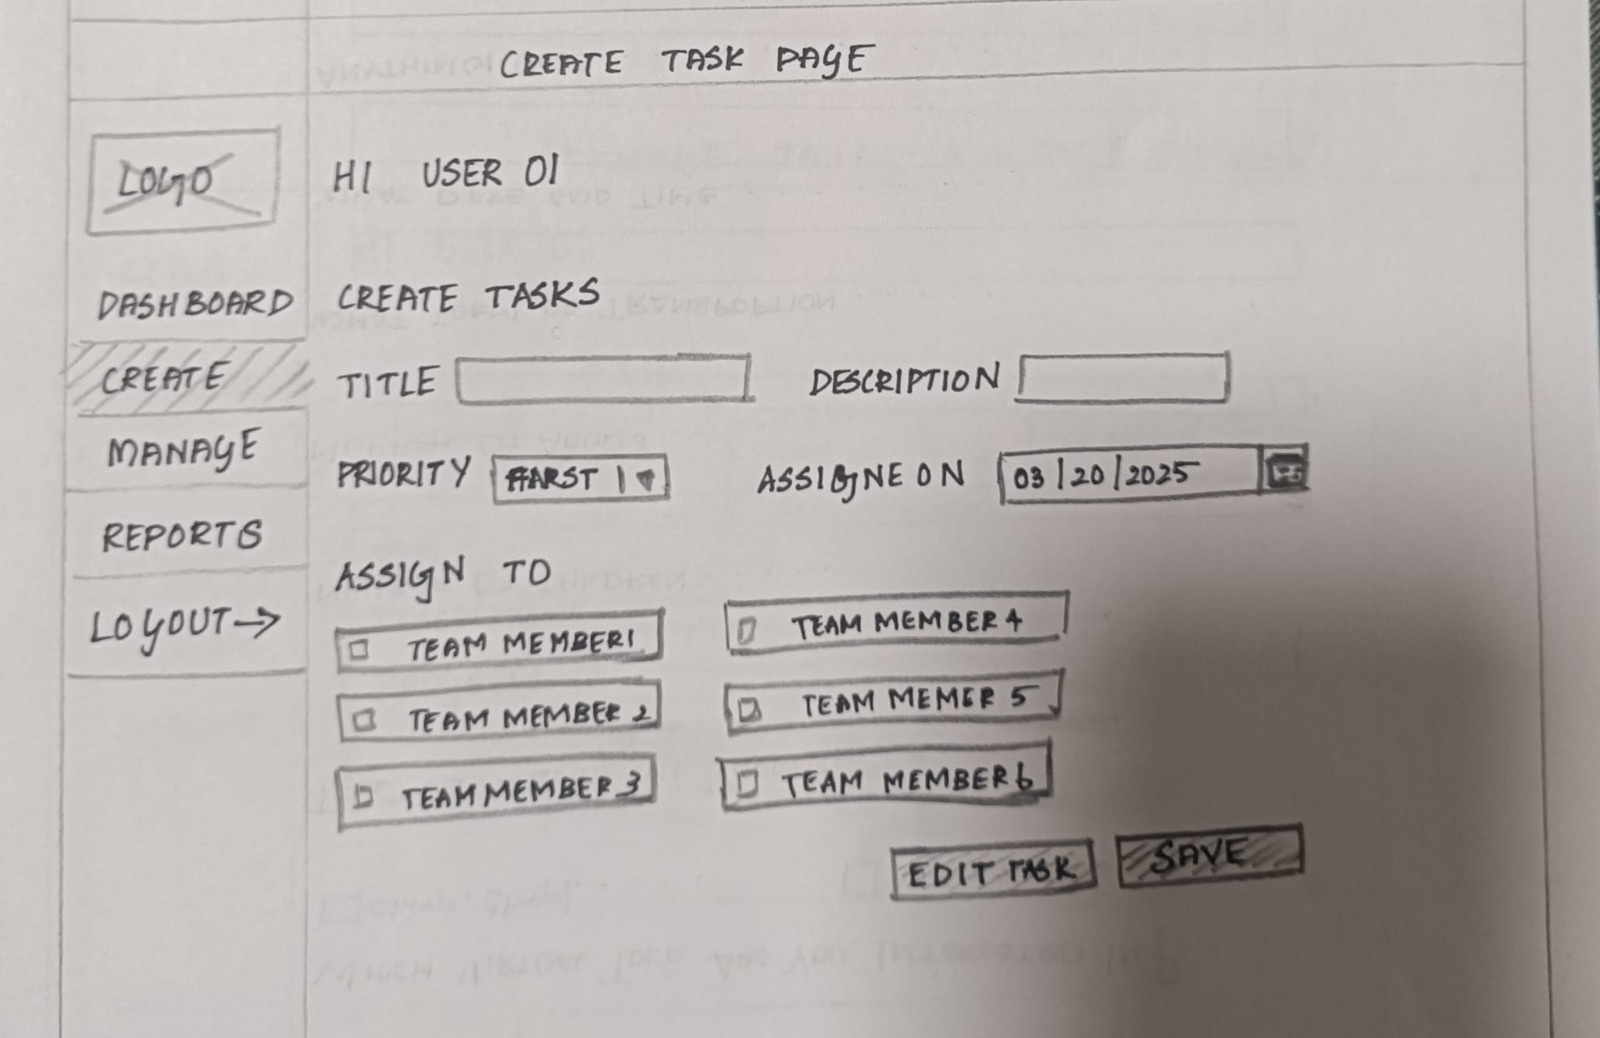 CREATE TASK PAGE
LOGO
HI USER 01
DASHBOARD
CREATE
MANAGE
REPORTS
LOGOUT→
CREATE TASKS
TITLE DESCRIPTION
PRIORITY ASSIGNE ON 03/20/2025
ASSIGN TO
TEAM MEMBER1 TEAM MEMBER 4
TEAM MEMBER 2 TEAM MEMER 5
TEAM MEMBER 3 TEAM MEMBER 6
EDIT TASK SAVE